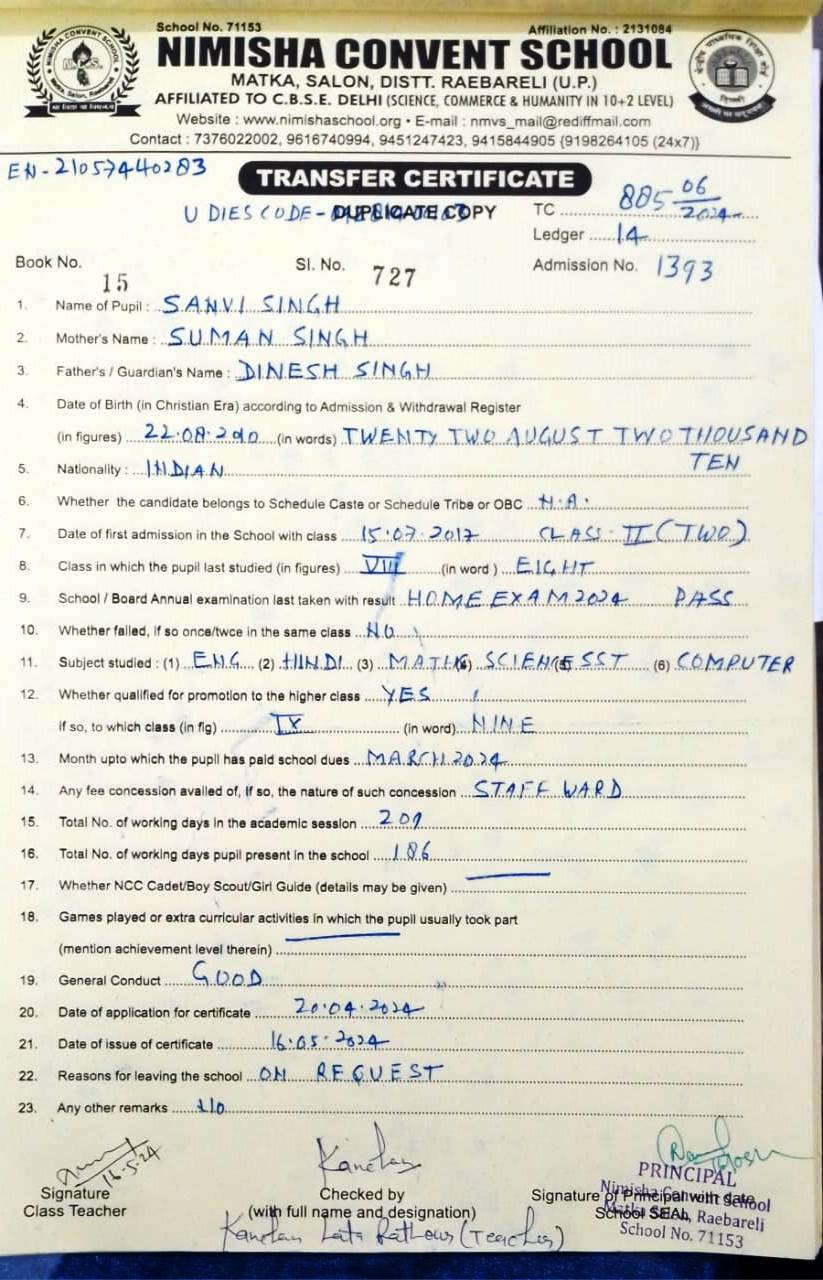 School No. 71153 Affiliation No. : 2131084
NIMISHA CONVENT SCHOOL
MATKA, SALON, DISTT. RAEBARELI (U.P.)
AFFILIATED TO C.B.S.E. DELHI (SCIENCE, COMMERCE & HUMANITY IN 10+2 LEVEL)
Website : www.nimishaschool.org • E-mail : nmvs_mail@rediffmail.com
Contact : 7376022002, 9616740994, 9451247423, 9415844905 {9198264105 (24x7)}
EN-21057440283
TRANSFER CERTIFICATE
U DIES CODE- DUPLICATE COPY
TC 885 06/2024
Ledger 14
Book No. 15 Sl. No. 727 Admission No. 1393
1. Name of Pupil : SANVI SINGH
2. Mother's Name : SUMAN SINGH
3. Father's / Guardian's Name : DINESH SINGH
4. Date of Birth (in Christian Era) according to Admission & Withdrawal Register
(in figures) 22.08.2010 (in words) TWENTY TWO AUGUST TWO THOUSAND
TEN
5. Nationality : INDIAN
6. Whether the candidate belongs to Schedule Caste or Schedule Tribe or OBC N.A.
7. Date of first admission in the School with class 15.07.2017 CLASS-II (TWO)
8. Class in which the pupil last studied (in figures) VIII (in word ) EIGHT
9. School / Board Annual examination last taken with result HOME EXAM 2024 PASS
10. Whether failed, if so once/twce in the same class NO
11. Subject studied : (1) ENG (2) HINDI (3) MATHS (4) SCIENCE (5) SST (6) COMPUTER
12. Whether qualified for promotion to the higher class YES
if so, to which class (in fig) IX (in word) NINE
13. Month upto which the pupil has paid school dues MARCH 2024
14. Any fee concession availed of, if so, the nature of such concession STAFF WARD
15. Total No. of working days in the academic session 209
16. Total No. of working days pupil present in the school 186
17. Whether NCC Cadet/Boy Scout/Girl Guide (details may be given)
18. Games played or extra curricular activities in which the pupil usually took part
(mention achievement level therein)
19. General Conduct GOOD
20. Date of application for certificate 20.04.2024
21. Date of issue of certificate 16.05.2024
22. Reasons for leaving the school ON REQUEST
23. Any other remarks NO
16-5-24
Kanchan
Signature
Class Teacher
Checked by
(with full name and designation)
Kanchan Lata Rathour (Teacher)
Signature of Principal with date
School SEAL
PRINCIPAL
Nimisha Convent School
Matka Salon, Raebareli
School No. 71153